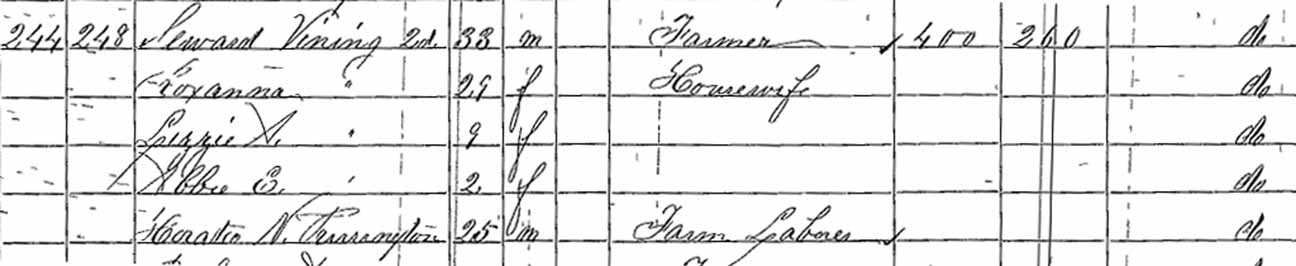 244 248 Seward Vining 2d. 33 m Farmer 400 260 do
Roxanna " 29 f Housewife do
Lizzie A. " 9 f do
Abbie E. " 2 f do
Horatio N. 25 m Farm Laborer do